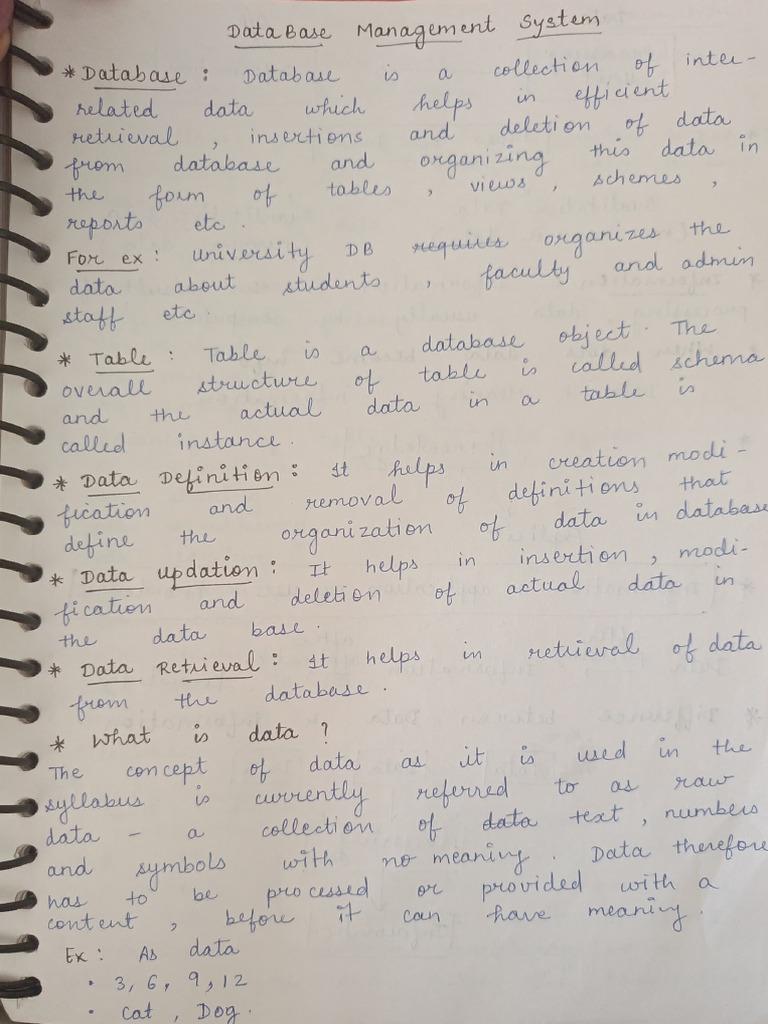 DataBase Management System
* Database : Database is a collection of inter-
related data which helps in efficient
retrieval , insertions and deletion of data
from database and organizing this data in
the form of tables , views , schemes ,
reports etc .
For ex : university DB requires organizes the
data about students , faculty and admin
staff etc.
* Table : Table is a database object. The
overall structure of table is called schema
and the actual data in a table is
called instance .
* Data Definition : It helps in creation modi-
fication and removal of definitions that
define the organization of data in database
* Data updation : It helps in insertion , modi-
fication and deletion of actual data in
the data base .
* Data Retrieval : It helps in retrieval of data
from the database .
* What is data ?
The concept of data as it is used in the
syllabus is currently referred to as raw
data - a collection of data text , numbers
and symbols with no meaning . Data therefore
has to be processed or provided with a
content , before it can have meaning .
Ex : As data
• 3, 6, 9, 12
• cat , Dog.